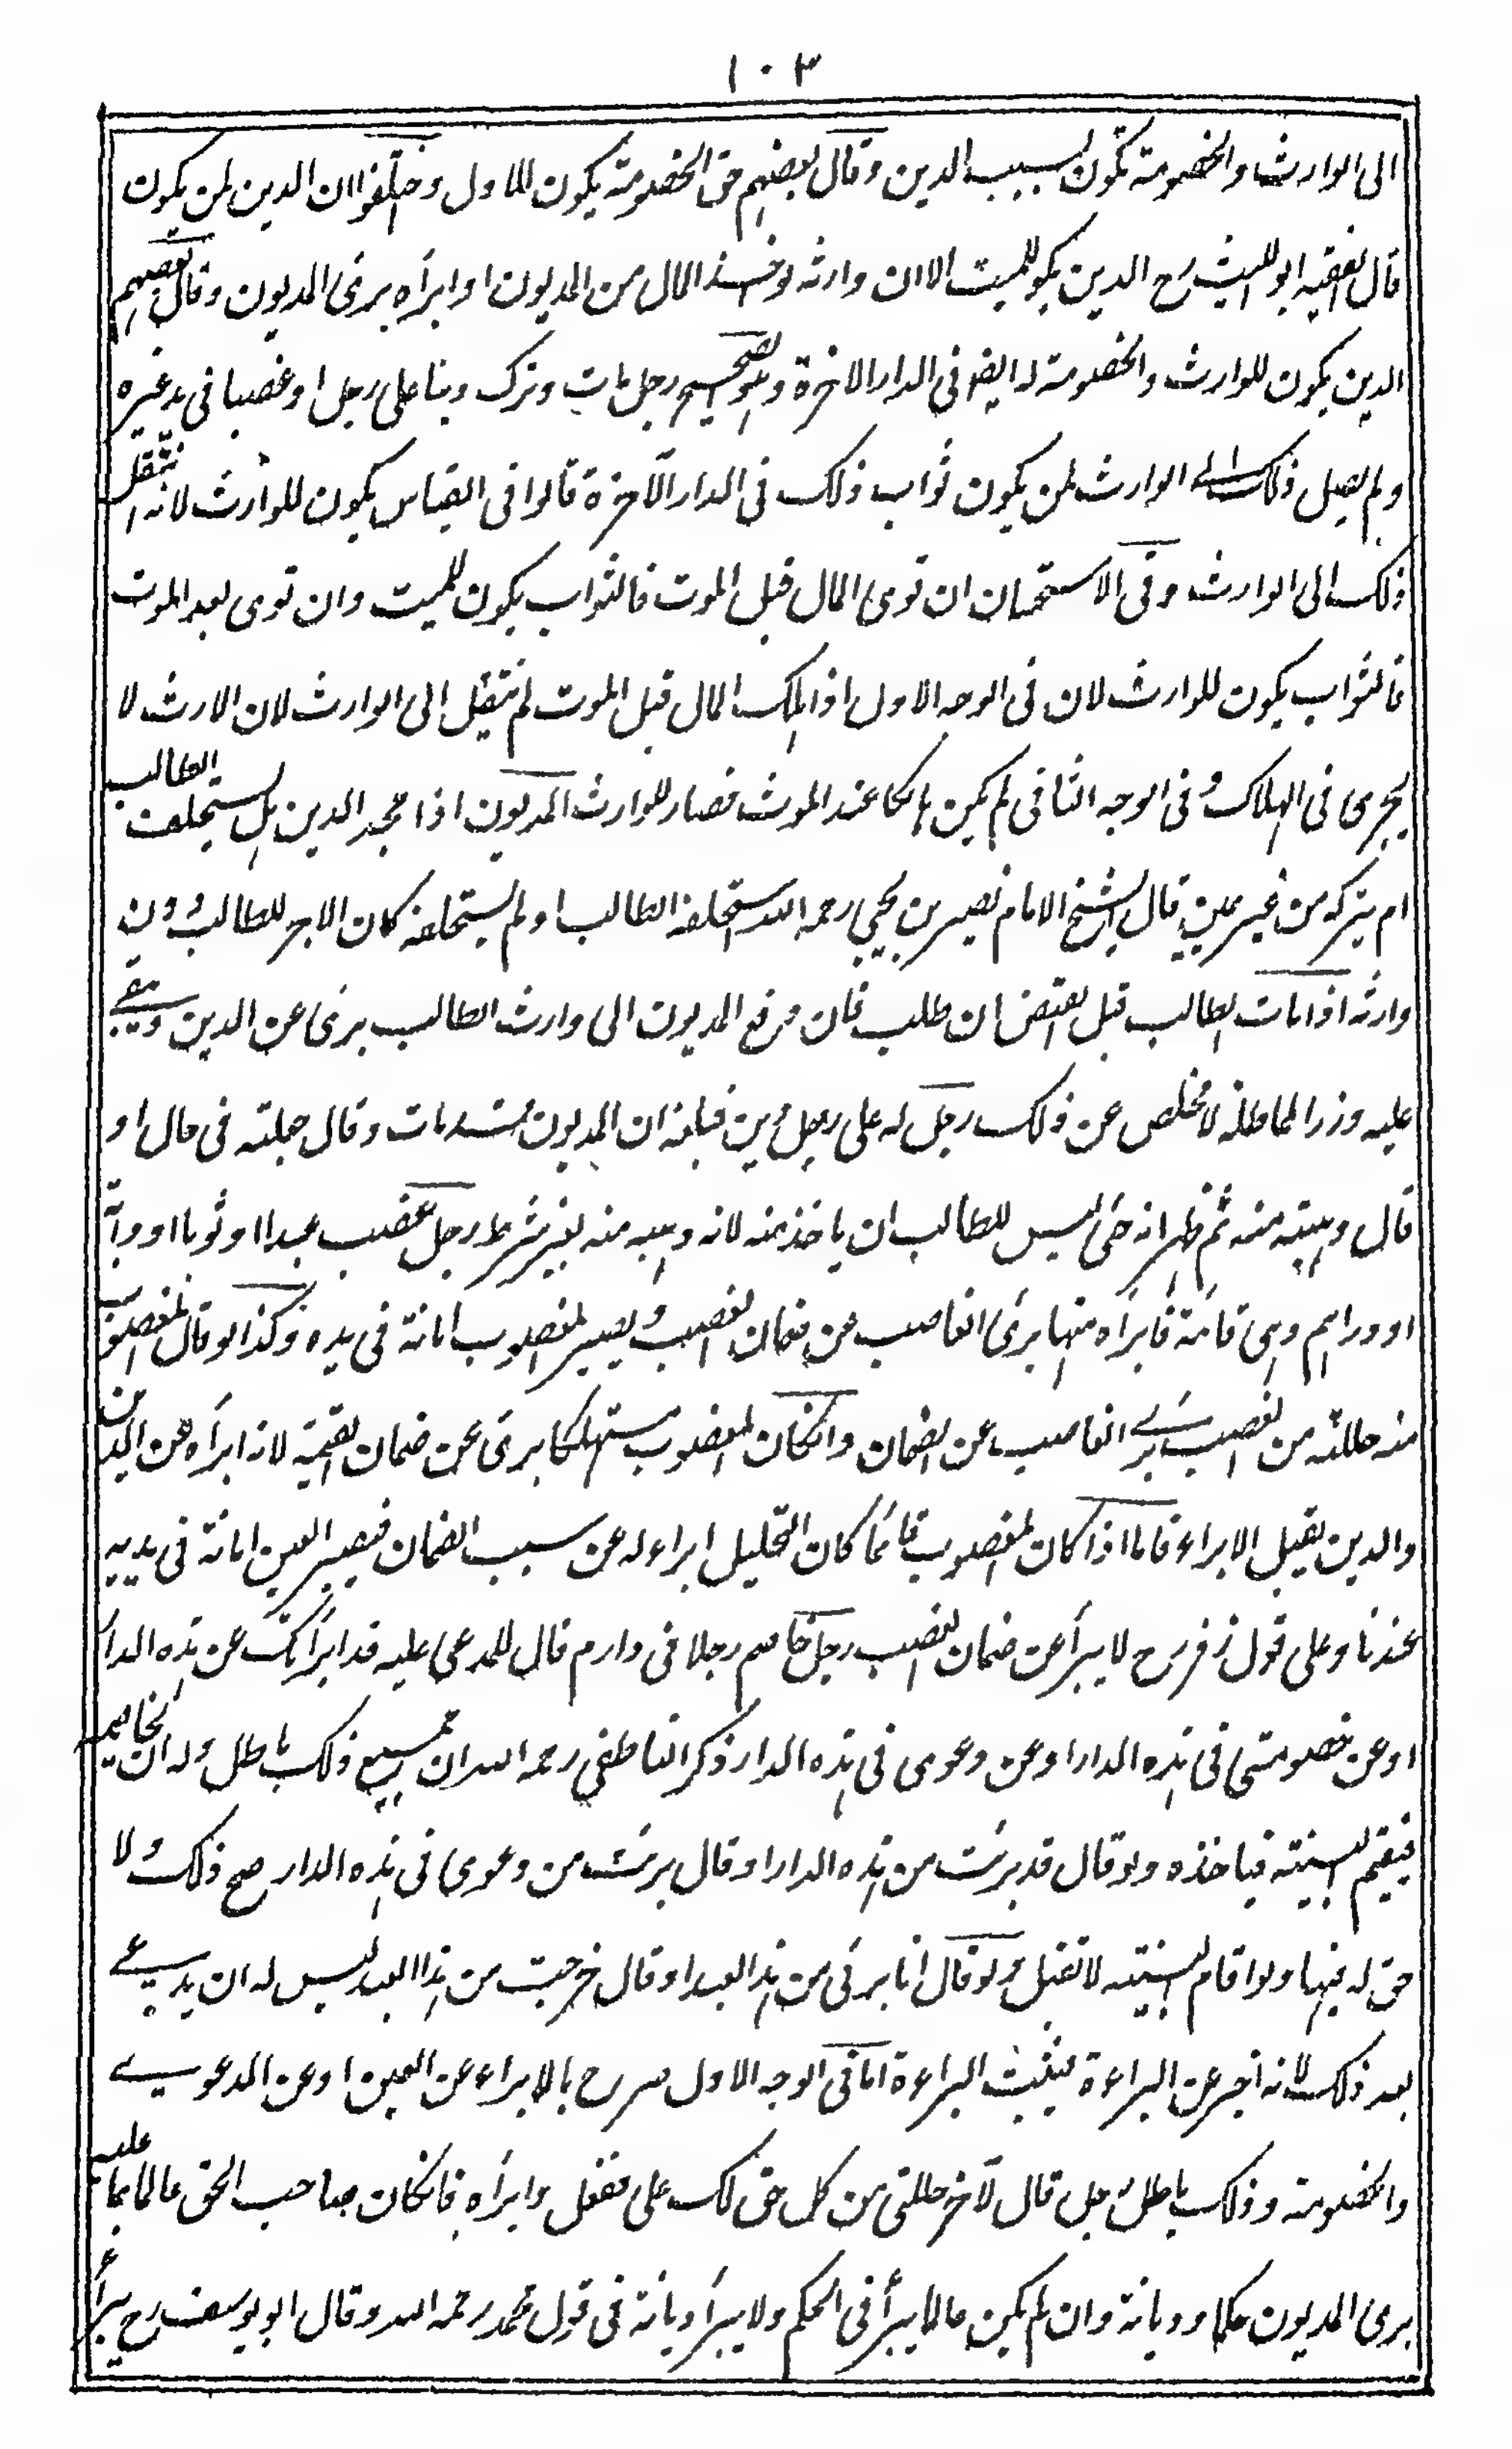 ١٠٣
الى الوارث والخصومة تكون بسبب الدين وقال بعضهم حق الخصومة يكون للاول واختلفوا ان الدين لمن يكون
قال الفقيه ابو الليث رح الدين يكون للميت الا ان وارثه لو اخذ المال من المديون او ابرأه برئ المديون وقال بعضهم
الدين يكون للوارث والخصومة له ايضا فى الدار الاخرة وهو الصحيح رجل مات وترك دينا على رجل او غصبا فى يد غيره
ولم يصل ذلك الى الوارث لمن يكون ثواب ذلك فى الدار الآخرة قالوا فى القياس يكون للوارث لانه انتقل
ذلك الى الوارث وفى الاستحسان ان توى المال قبل الموت فالثواب يكون للميت وان توى بعد الموت
فالثواب يكون للوارث لان فى الوجه الاول اذا هلك المال قبل الموت لم ينتقل الى الوارث لان الارث لا
يجرى فى الهلاك وفى الوجه الثانى لم يكن هالكا عند الموت فصار للوارث المديون اذا جحد الدين هل يستحلف الطالب
ام يتركه من غير يمين قال الشيخ الامام نصير بن يحيى رحمه الله استحلفه الطالب او لم يستحلفه كان الاجر للطالب دون
وارثه اذا مات الطالب قبل القبض ان طلب فان دفع المديون الى وارث الطالب برئ عن الدين ويبقى
عليه وزر المماطلة لا مخلص عن ذلك رجل له على رجل دين فبلغه ان المديون قد مات وقال جعلته فى حل او
قال وهبته منه ثم ظهر انه حى ليس للطالب ان ياخذ منه لانه وهبه منه بغير شرط رجل غصب عبدا او ثوبا او دابة
او دراهم وهى قائمة فابرأه منها برئ الغاصب عن ضمان الغصب ويصير المغصوب امانة فى يده وكذا لو قال المغصوب
منه حللته من الغصب برئ الغاصب عن الضمان وانكان المغصوب مستهلكا برئ عن ضمان القيمة لانه ابرأه عن الدين
والدين يقبل الابراء فاما اذا كان المغصوب قائما كان التحليل ابراء له عن سبب الضمان فيصير العين امانة فى يديه
عندنا وعلى قول زفر رح لا يبرأ عن ضمان الغصب رجل خاصم رجلا فى دار ثم قال للمدعى عليه قد ابرأتك عن هذه الدار
او عن خصومتى فى هذه الدار او عن دعوى فى هذه الدار ذكر الناطفى رحمه الله ان جميع ذلك باطل وله ان يخاصم
فيقيم البينة فياخذه ولو قال قد برئت من هذه الدار او قال برئت من دعوى فى هذه الدار صح ذلك ولا
حق له فيها ولو اقام البينة لا تقبل ولو قال انا برئ من هذا العبد او قال خرجت من هذا العبد ليس له ان يدعى
بعد ذلك لانه اخبر عن البراءة فيثبت البراءة اما فى الوجه الاول صرح بالابراء عن العين او عن الدعوى
والخصومة وذلك باطل رجل قال لآخر حللنى من كل حق لك على ففعل وابرأه فانكان صاحب الحق عالما بما عليه
برى المديون حكما وديانة وان لم يكن عالما يبرأ فى الحكم ولا يبرأ ديانة فى قول محمد رحمه الله وقال ابو يوسف رح يبرأ